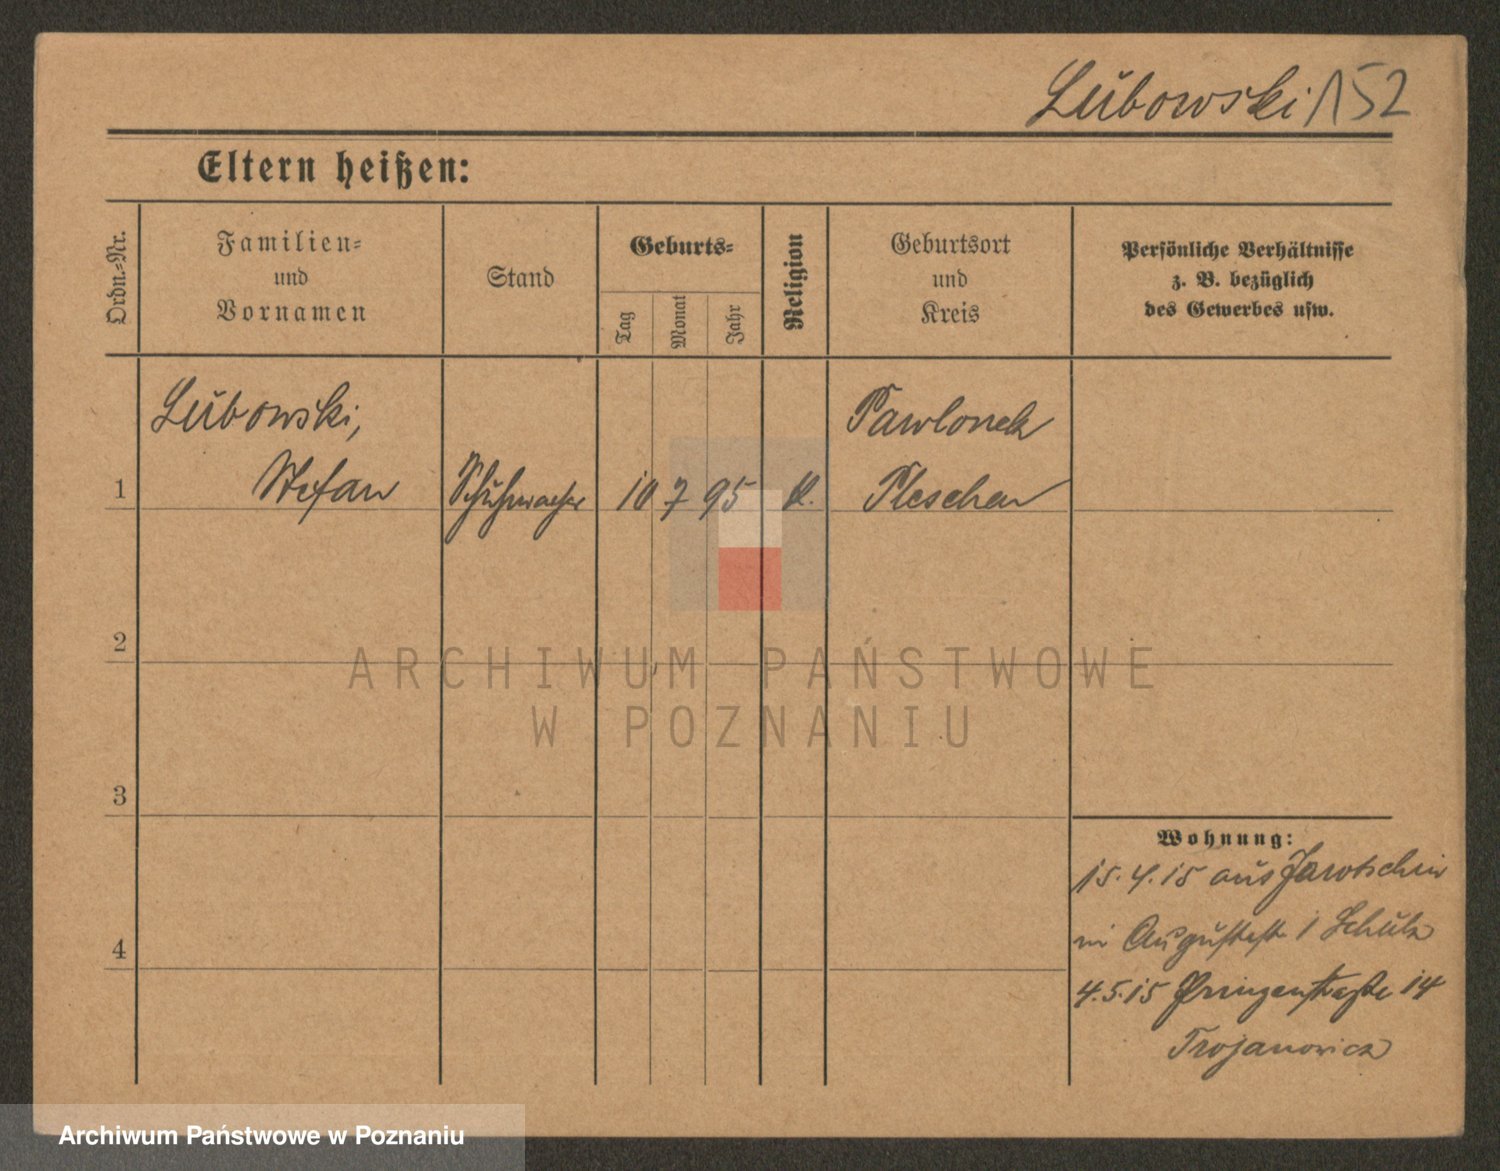 Lubowski 152
Eltern heißen:
Ordn.=Nr.
Familien=
und
Vornamen
Stand
Geburts=
Tag
Monat
Jahr
Religion
Geburtsort
und
Kreis
Persönliche Verhältnisse
z. B. bezüglich
des Gewerbes usw.
Lubowski,
Pawlowek
1 Stefan Schuhmacher 10 7 95 k. Pleschen
2
3
4
Wohnung:
15.4.15 aus Jarotschin
in Augustestr 1 Schulz
4.5.15 Prinzenstraße 14
Trojanowicz
ARCHIWUM PAŃSTWOWE
W POZNANIU
Archiwum Państwowe w Poznaniu